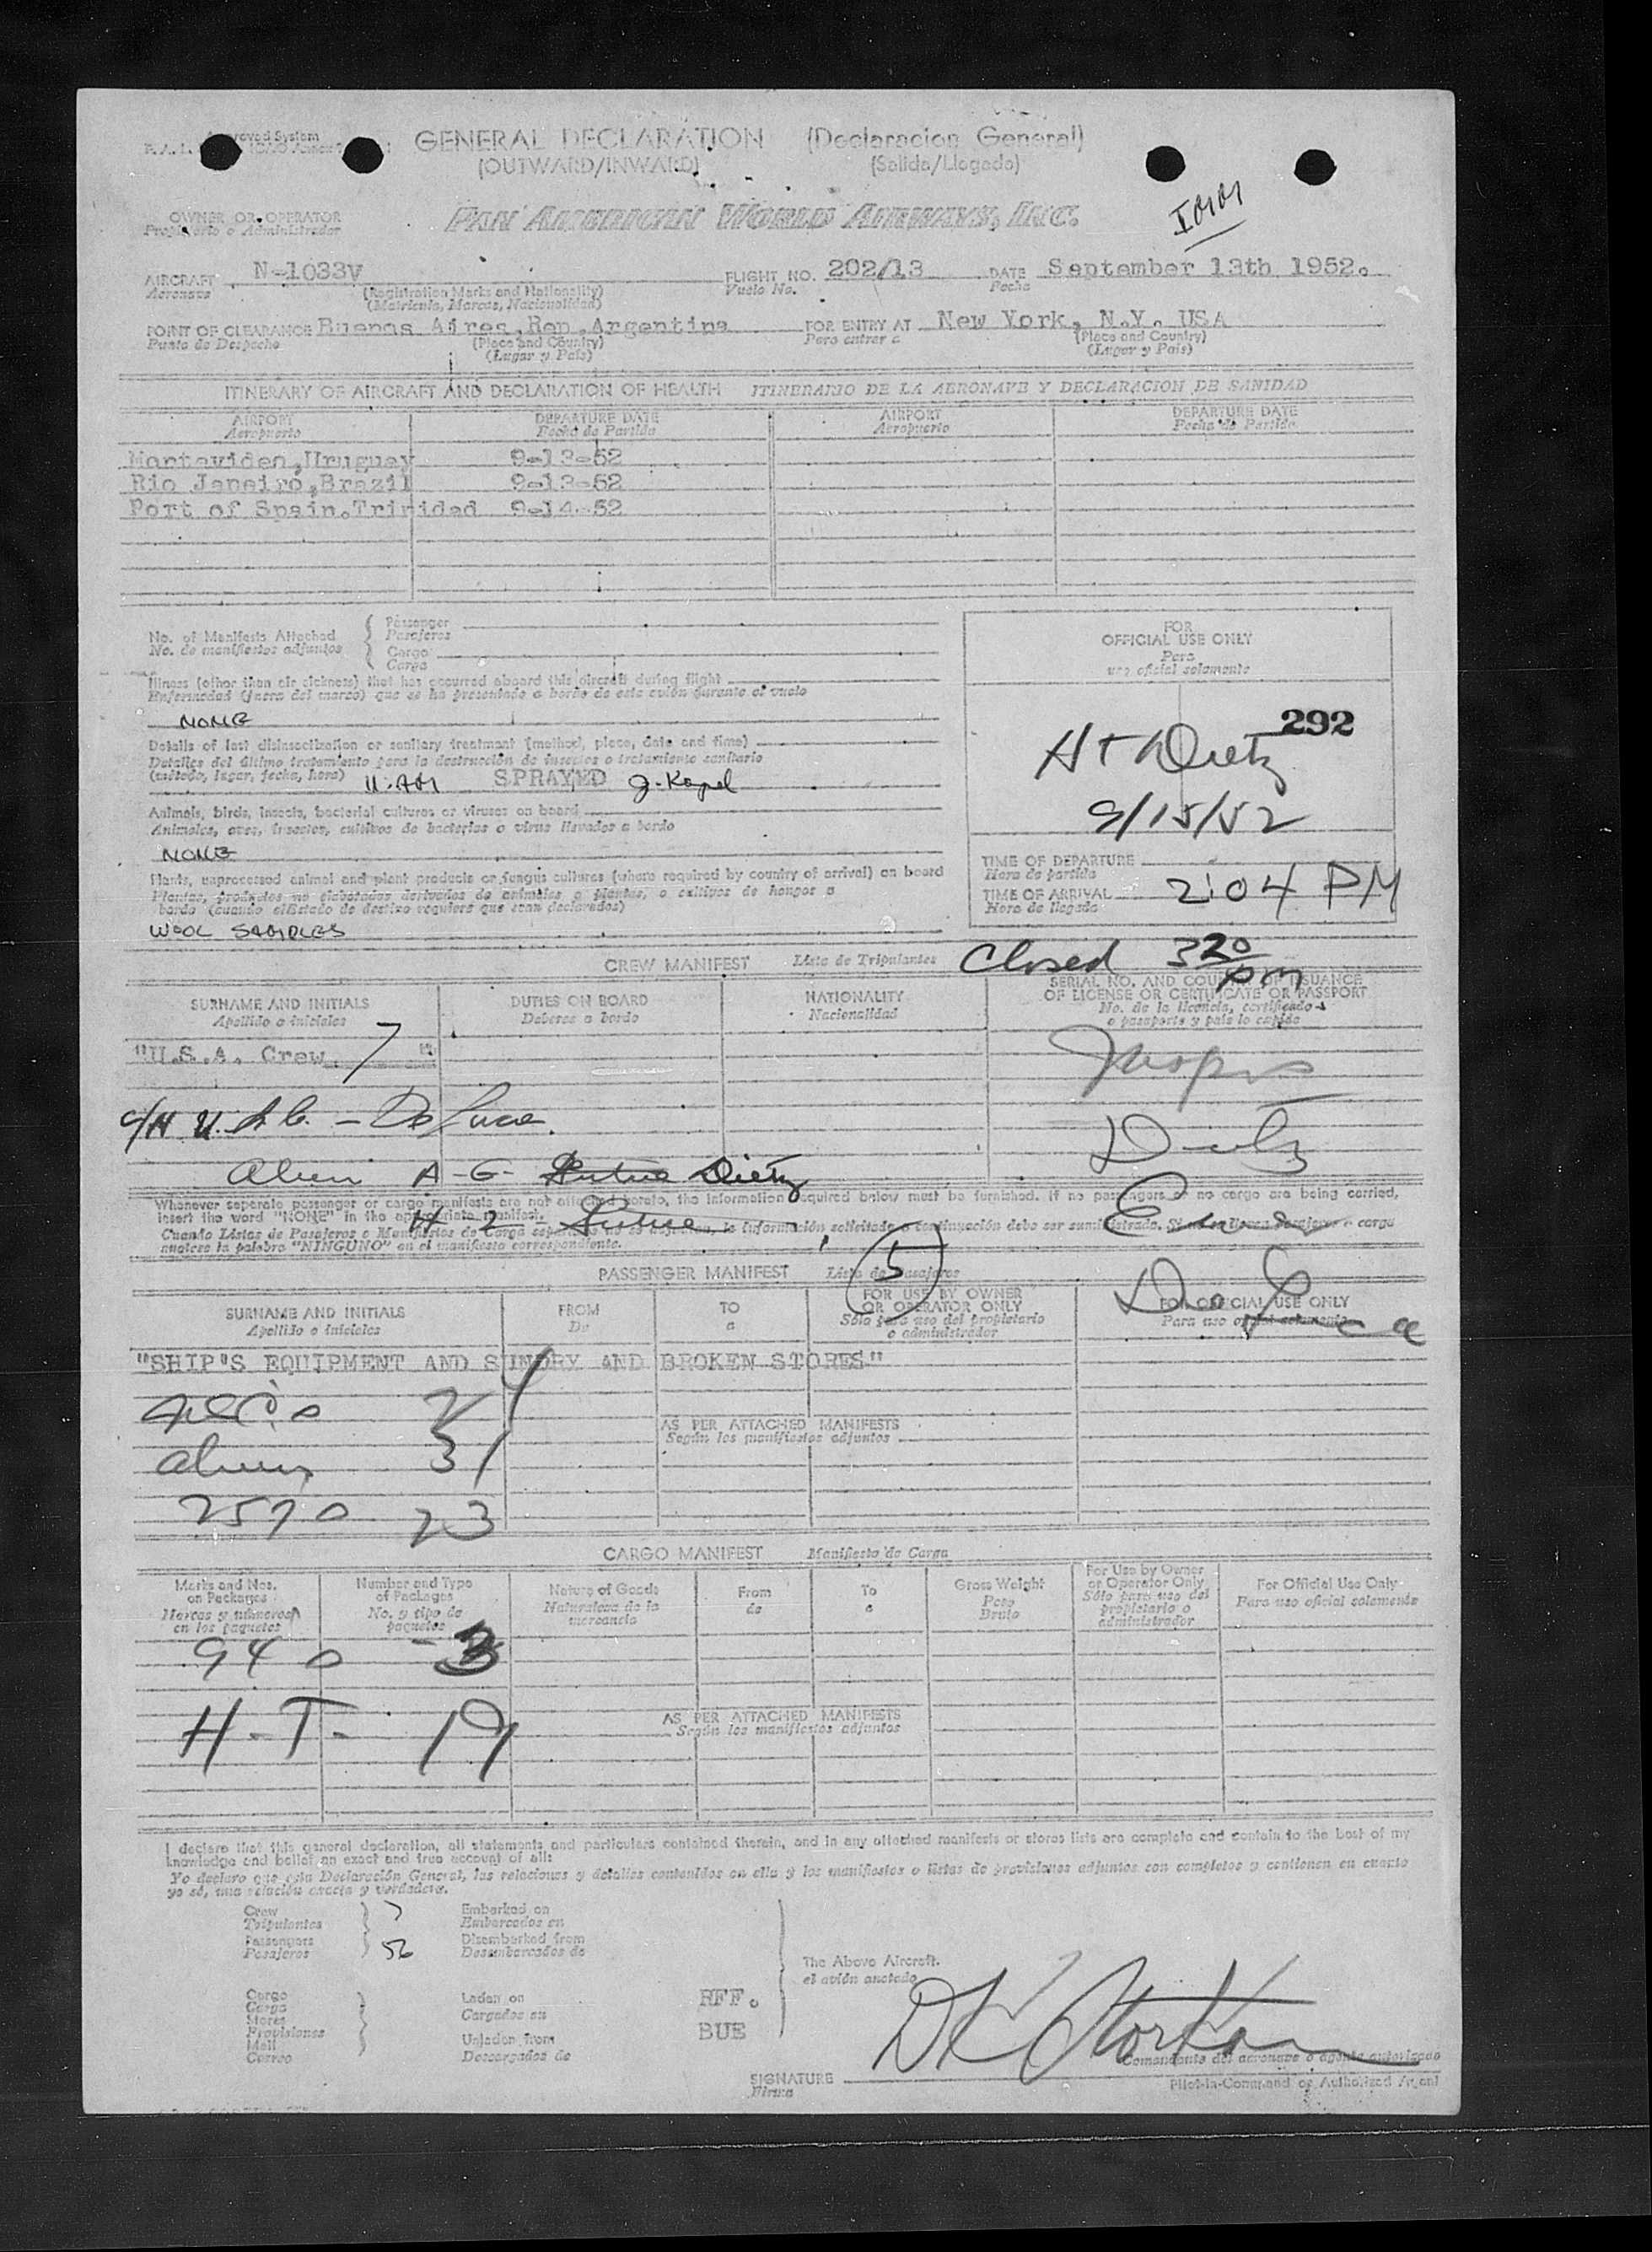 GENERAL DECLARATION (Declaracion General)
(OUTWARD/INWARD) (Salida/Llegada)
OWNER OR OPERATOR
Propietario o Administrador
PAN AMERICAN WORLD AIRWAYS, INC.
AIRCRAFT N-1033V FLIGHT NO. 202/13 DATE September 13th 1952.
Aeronave (Registration Marks and Nationality) Vuelo No. Fecha
(Matricula, Marcas, Nacionalidad)
POINT OF CLEARANCE Buenos Aires, Rep. Argentina FOR ENTRY AT New York, N.Y. USA
Punto de Despacho (Place and Country) Para entrar a (Place and Country)
(Lugar y País) (Lugar y País)
ITINERARY OF AIRCRAFT AND DECLARATION OF HEALTH ITINERARIO DE LA AERONAVE Y DECLARACION DE SANIDAD
AIRPORT DEPARTURE DATE AIRPORT DEPARTURE DATE
Aeropuerto Fecha de Partida Aeropuerto Fecha de Partida
Montevideo,Uruguay 9-13-52
Rio Janeiro,Brazil 9-13-52
Port of Spain.Trinidad 9-14-52
No. of Manifests Attached Passenger
No. de manifiestos adjuntos Pasajeros
Cargo
Carga
FOR
OFFICIAL USE ONLY
Para
uso oficial solamente
Illness (other than air sickness) that has occurred aboard this aircraft during flight
Enfermedad (fuera del mareo) que se ha presentado a bordo de este avión durante el vuelo
NONE
292
Details of last disinsectization or sanitary treatment (method, place, date and time)
Detalles del último tratamiento para la destrucción de insectos o tratamiento sanitario
(método, lugar, fecha, hora) SPRAYED
H T Dietz
9/15/52
Animals, birds, insects, bacterial cultures or viruses on board
Animales, aves, insectos, cultivos de bacterias o virus llevados a bordo
NONE
TIME OF DEPARTURE
Hora de partida
TIME OF ARRIVAL 2:04 PM
Hora de llegada
Plants, unprocessed animal and plant products or fungus cultures (where required by country of arrival) on board
Plantas, productos no elaborados derivados de animales o plantas, o cultivos de hongos a
bordo (cuando el Estado de destino requiera que sean declarados)
WOOL SAMPLES
CREW MANIFEST Lista de Tripulantes Closed 3 20 pm
SURNAME AND INITIALS DUTIES ON BOARD NATIONALITY SERIAL NO. AND COUNTRY OF ISSUANCE
OF LICENSE OR CERTIFICATE OR PASSPORT
Apellido o iniciales Deberes a bordo Nacionalidad No. de la licencia, certificado
o pasaporte y pais lo expide
"U.S.A. Crew. 7 "
De Luca
Dietz
A-G- Dietz
Whenever separate passenger or cargo manifests are not attached hereto, the information required below must be furnished. If no passengers or no cargo are being carried,
insert the word "NONE" in the appropriate manifest.
Cuando Listas de Pasajeros o Manifiestos de Carga separados no se adjuntan, la información solicitada a continuación debe ser suministrada. Si no se llevan pasajeros o carga
anótese la palabra "NINGUNO" en el manifiesto correspondiente.
5
PASSENGER MANIFEST Lista de Pasajeros
SURNAME AND INITIALS FROM TO FOR USE BY OWNER OR OPERATOR ONLY FOR OFFICIAL USE ONLY
Apellido o iniciales De a Sólo para uso del propietario o administrador Para uso oficial solamente
De Luca
"SHIP'S EQUIPMENT AND SUNDRY AND BROKEN STORES"
AS PER ATTACHED MANIFESTS
Según los manifiestos adjuntos
CARGO MANIFEST Manifiesto de Carga
Marks and Nos. on Packages Number and Type of Packages Nature of Goods From To Gross Weight For Use by Owner or Operator Only For Official Use Only
Marcas y números en los paquetes No. y tipo de paquetes Naturaleza de la mercancía de a Peso Bruto Sólo para uso del propietario o administrador Para uso oficial solamente
H-T- 19
AS PER ATTACHED MANIFESTS
Según los manifiestos adjuntos
I declare that this general declaration, all statements and particulars contained therein, and in any attached manifests or stores lists are complete and contain to the best of my
knowledge and belief an exact and true account of all:
Yo declaro que esta Declaración General, las relaciones y detalles contenidos en ella y los manifiestos o listas de provisiones adjuntos son completos y contienen en cuanto
yo sé, una relación exacta y verdadera.
Crew 7 Embarked on
Tripulantes Embarcados en
Passengers 56 Disembarked from
Pasajeros Desembarcados de
The Above Aircraft.
el avión anotado
Cargo Laden on RFF.
Carga Cargados en
Stores
Provisiones BUE
Mail Unladen from
Correo Descargados de
SIGNATURE
Firma
Comandante del aeronave o agente autorizado
Pilot-in-Command or Authorized Agent